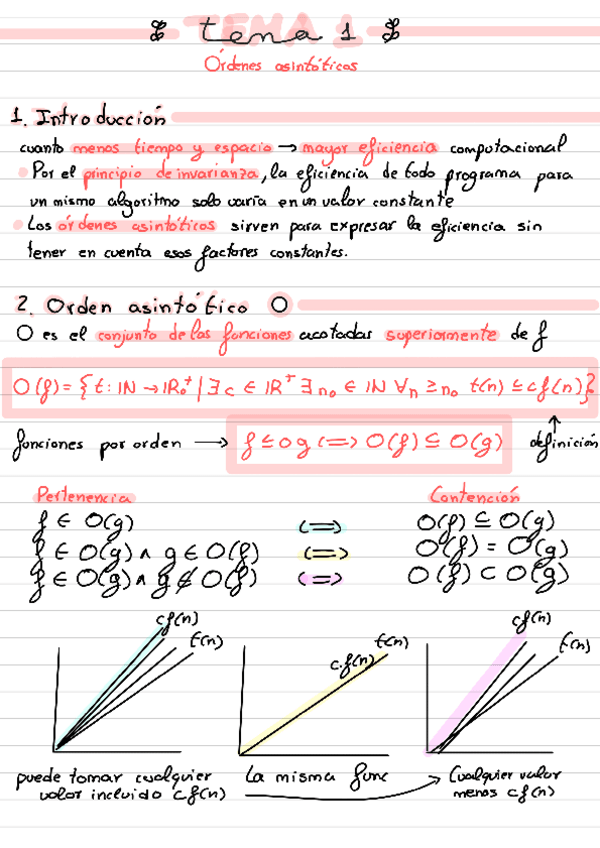 TEMA 1
tema 1
Órdenes asintóticos
1. Introducción
cuanto menos tiempo y espacio → mayor eficiencia computacional
Por el principio de invarianza, la eficiencia de todo programa para
un mismo algoritmo solo varía en un valor constante
Los órdenes asintóticos sirven para expresar la eficiencia sin
tener en cuenta esos factores constantes.
2. Orden asintótico O
O es el conjunto de las funciones acotadas superiormente de f
O(f) = { t: IN → IR₀⁺ | ∃c ∈ IR⁺ ∃n₀ ∈ IN ∀n ≥ n₀ t(n) ≤ cf(n)}
funciones por orden → f ≤o g <=> O(f) ⊆ O(g) definición
Pertenencia Contención
f ∈ O(g) <=> O(f) ⊆ O(g)
f ∈ O(g) ∧ g ∈ O(f) <=> O(f) = O(g)
f ∈ O(g) ∧ g ∉ O(f) <=> O(f) ⊂ O(g)
cf(n) t(n) c.f(n) t(n) cf(n) t(n)
puede tomar cualquier La misma func Cualquier valor
valor incluido cf(n) → menos cf(n)